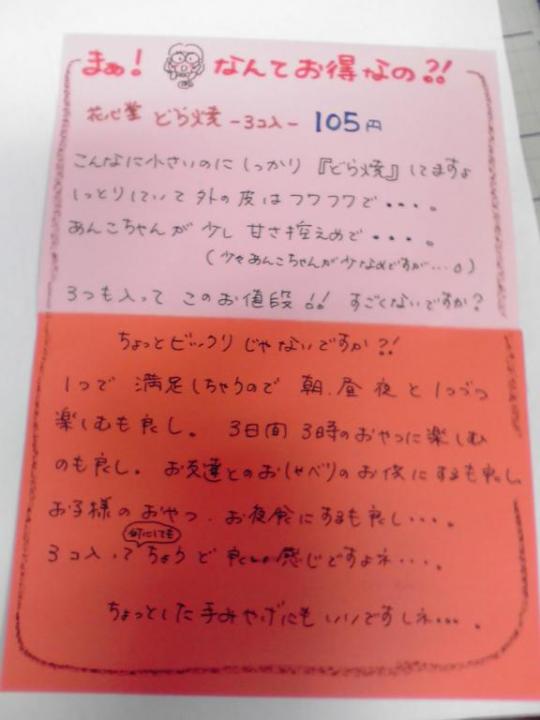 まぁ! なんてお得なの?!
花心堂 どら焼 -3コ入- 105円
こんなに小さいのに しっかり『どら焼』してますよ
しっとりしていて 外の皮はフワフワで・・・。
あんこちゃんが 少し 甘さ控えめで・・・。
(少々あんこちゃんが少なめですが…。)
3つも入って このお値段!! すごくないですか?
ちょっとビックリじゃないですか?!
1つで 満足しちゃうので 朝.昼 夜と 1つづつ
楽しむも良し。 3日間 3時のおやつに楽しむ
のも良し。 お友達とのおしゃべりのお供にするも良し。
お子様の おやつ. お夜食にするも良し…。
何にしても
3コ入って ちょうど 良い 感じですよネ…。
ちょっとした 手みやげにも いいですしネ…。